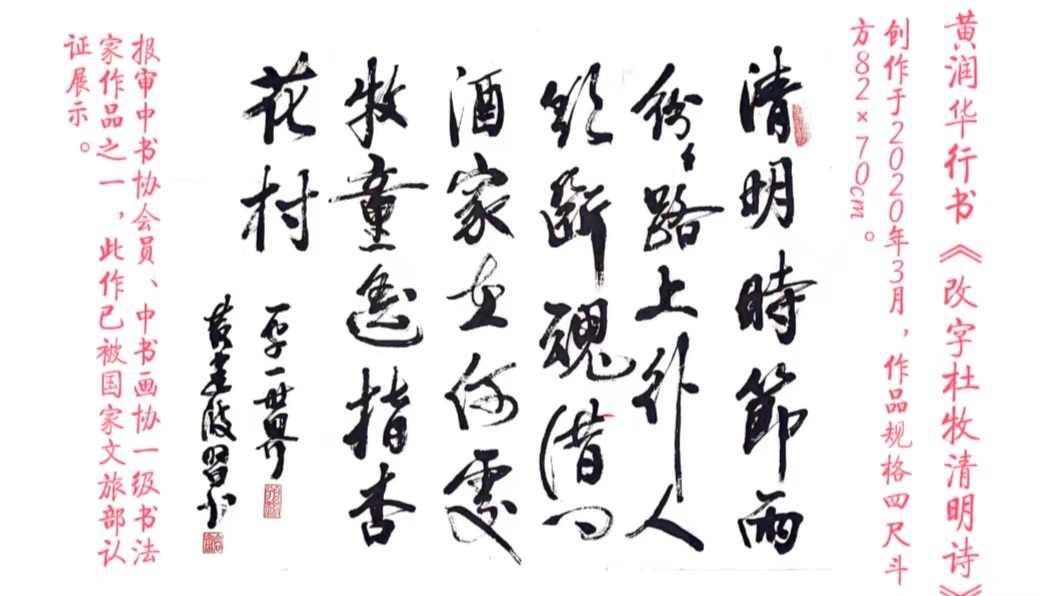 黄润华行书《改字杜牧清明诗》
创作于2020年3月，作品规格四尺斗
方82×70cm。
清明時節雨
紛〻路上行人
欲斷魂借问
酒家在何處
牧童遥指杏
花村
一字一世界
报审中书协会员、中书画协一级书法
家作品之一，此作已被国家文旅部认
证展示。